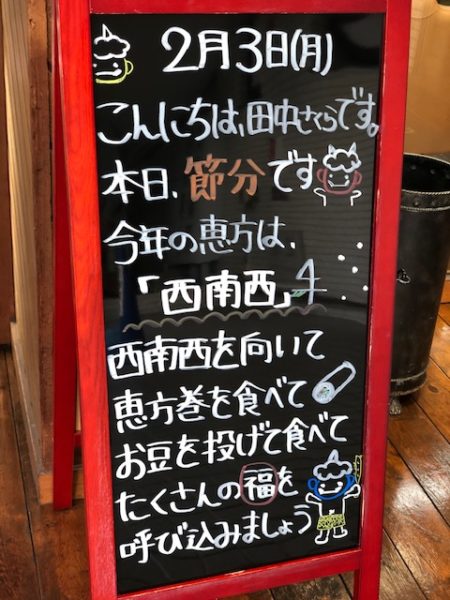 2月3日(月)
こんにちは、田中さくらです。
本日、節分です
今年の恵方は、
「西南西」
西南西を向いて
恵方巻を食べて
お豆を投げて食べて
たくさんの福を
呼び込みましょう